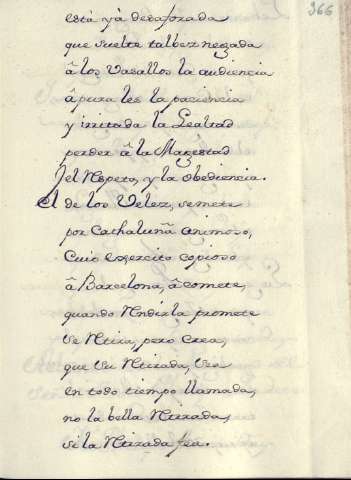 366
està yà desaforada
que suelta talvez negada
â los Vasallos la audiencia
âpura les la paciencia
y irritada la Lealtad
perder â la Magestad
el Respeto, y la obediencia.
El de los Velez, se mete
por Cathaluña animoso,
Cuio exercito copioso
â Barcelona, âcomete,
quando Rndirla promete
se Rtira, pero Crea,
que su Rtirada, sea
en todo tiempo llamada,
no la bella Rtirada,
si la Rtirada fea.